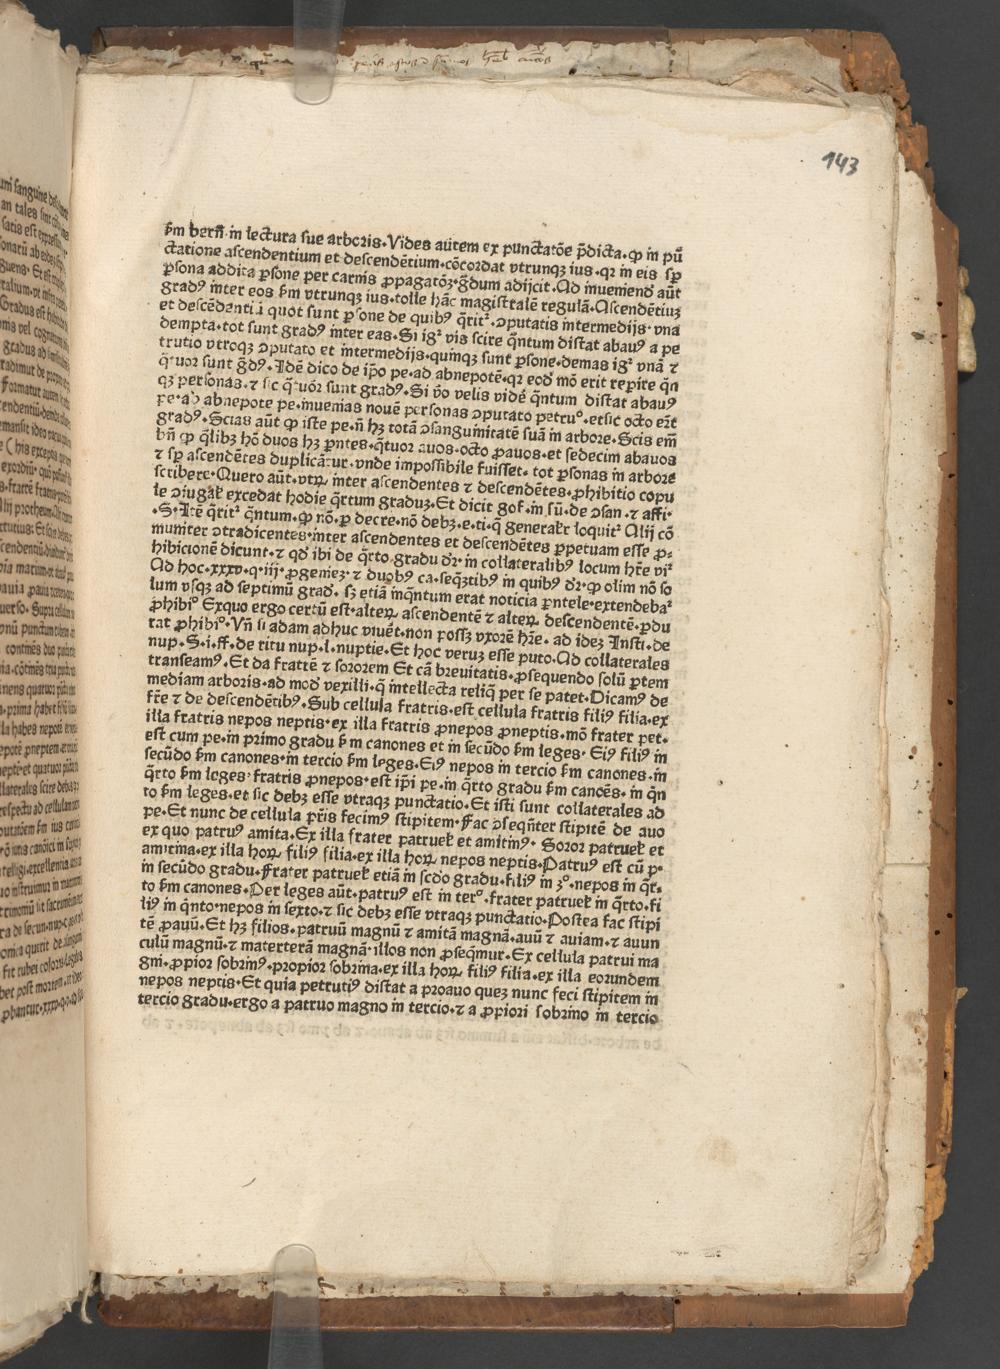 143
ẜm bern̄·in lectura sue arboris·Vides autem ex punctatōe p̄dicta·ꝙ in pū
ctatione ascendentium et descendētium·cōcordat vtrunqꝫ ius·qꝛ in eis sꝑ
ꝑsona addita ꝑsone per carnis ꝓpagatōꝫ·gͣdum adijcit·Ad inueniend̄ aūt
gradꝰ inter eos ẜm vtrunqꝫ ius·tolle hāc magistralē regulā·Ascendētiuꝫ
et descēdentiū quot sunt ꝑsone de quibꝰ q̄ritᷣ·ꝯputatis intermedijs·vna
dempta·tot sunt gradꝰ inter eas·Si igᷣ vis scire q̄ntum distat abauꝰ a pe
trutio vtroqꝫ ꝯputato et intermedijs·quinqꝫ sunt ꝑsone·demas igᷣ vnā ⁊
q̄tuor sunt gͣdꝰ·Idē dico de ip̄o pe·ad abnepotē·qꝛ eod̄ mō erit reꝑire q̄n
qꝫ personas·⁊ sic q̄tuor sunt gradꝰ·Si ꝟo velis vidē q̄ntum distat abauꝰ
pe·ab abnepote pe·inuenias nouē personas ꝯputato petruº·et sic octo erūt
gradꝰ·Scias aūt ꝙ iste pe·n̄ hꝫ totā ꝯsanguinitatē suā in arbore·Scis em̄
bn̄ ꝙ q̄libꝫ hō duos hꝫ ꝑntes·q̄tuor auos·octo ꝓauos·et sedecim abauos
⁊ sꝑ ascendētes duplicātur·vnde impossibile fuisset·tot ꝑsonas in arbore
scribere·Quero aūt·vtꝝ inter ascendentes ⁊ descendētes·ꝓhibitio copu
le ꝯiugał excedat hodie q̄rtum graduꝫ·Et dicit gof·in sū·de ꝯsan·⁊ affi·
·S·Itē q̄ritᷣ q̄ntum·ꝙ nō·ꝑ decre·nō debꝫ·e·ti·q̄ generalr̄ loquitᷣ Alij cō
muniter ꝯtradicentes·inter ascendentes et descendētes ꝑpetuam esse ꝓ
hibicionē dicunt·⁊ qd̄ ibi de q̄rto gradu dr̄·in collateralibꝰ locum hr̄e viᷣ
Ad hoc·xxxv·q·iij·ꝓgenieꝫ·⁊ duobꝰ ca·seq̄ntibꝰ in quibꝰ dr̄·ꝙ olim nō so
lum vsqꝫ ad septimū grad̄·sꝫ etiā inq̄ntum erat noticia ꝑntele·extendebaᷣ
ꝓhibiº Exquo ergo certū est·alteꝝ ascendentē ⁊ alteꝝ descendentē·ꝑdu
rat ꝓhibiº·Vn̄ si adam adhuc viuēt·non possꝫ vxorē hr̄e·ad ideꝫ Insti·de
nup·S·i·ff·de ritu nup·l·nuptie·Et hoc veruꝫ esse puto·Ad collaterales
transeamꝰ·Et da fratrē ⁊ sororem Et cā breuitatis·ꝓsequendo solū ꝑtem
mediam arboris·ad mod̄ vexilli·q̄ intellecta reliq̄ per se patet·Dicamꝰ de
fr̄e ⁊ de descendētibꝰ·Sub cellula fratris·est cellula fratris filiꝰ filia·ex
illa fratris nepos neptis·ex illa fratris ꝓnepos ꝓneptis·mō frater pet·
est cum pe·in primo gradu ẜm canones et in secūdo ẜm leges·Eiꝰ filiꝰ in
secūdo ẜm canones·in tercio ẜm leges·Eiꝰ nepos in tercio ẜm canones·in
q̄rto ẜm leges·fratris ꝓnepos·est ip̄i pe·in q̄rto gradu ẜm canōes·in q̄n
to ẜm leges·et sic debꝫ esse vtraqꝫ punctatio·Et isti sunt collaterales ad
pe·Et nunc de cellula pr̄is fecimꝰ stipitem·Fac ꝯseq̄nter stipitē de auo
ex quo patruꝰ amita·Ex illa frater patruel̄ et amitinꝰ·Soror patruel̄ et
amitina·ex illa hoꝝ filiꝰ filia·ex illa hoꝝ nepos neptis·Patruꝰ est cū p·
in secūdo gradu·Frater patruel̄ etiā in scd̄o gradu·filiꝰ in 3º·nepos in q̄r·
to ẜm canones·Per leges aūt·patruꝰ est in terº·frater patruel̄ in q̄rto·fi
liꝰ in q̄nto·nepos in sexto·⁊ sic debꝫ esse vtraqꝫ punctatio·Postea fac stipi
tē ꝓauū·Et hꝫ filios·patruū magnū ⁊ amitā magnā·auū ⁊ auiam·⁊ auun
culū magnū·⁊ materterā magnā·illos non ꝓseq̄mur·Ex cellula patrui ma
gni·ꝓpior sobrinꝰ·propior sobrina·ex illa hoꝝ filiꝰ filia·ex illa eorundem
nepos neptis·Et quia petrutiꝰ distat a proauo queꝫ nunc feci stipitem in
tercio gradu·ergo a patruo magno in tercio·⁊ a ꝓpiori sobrino in tercio